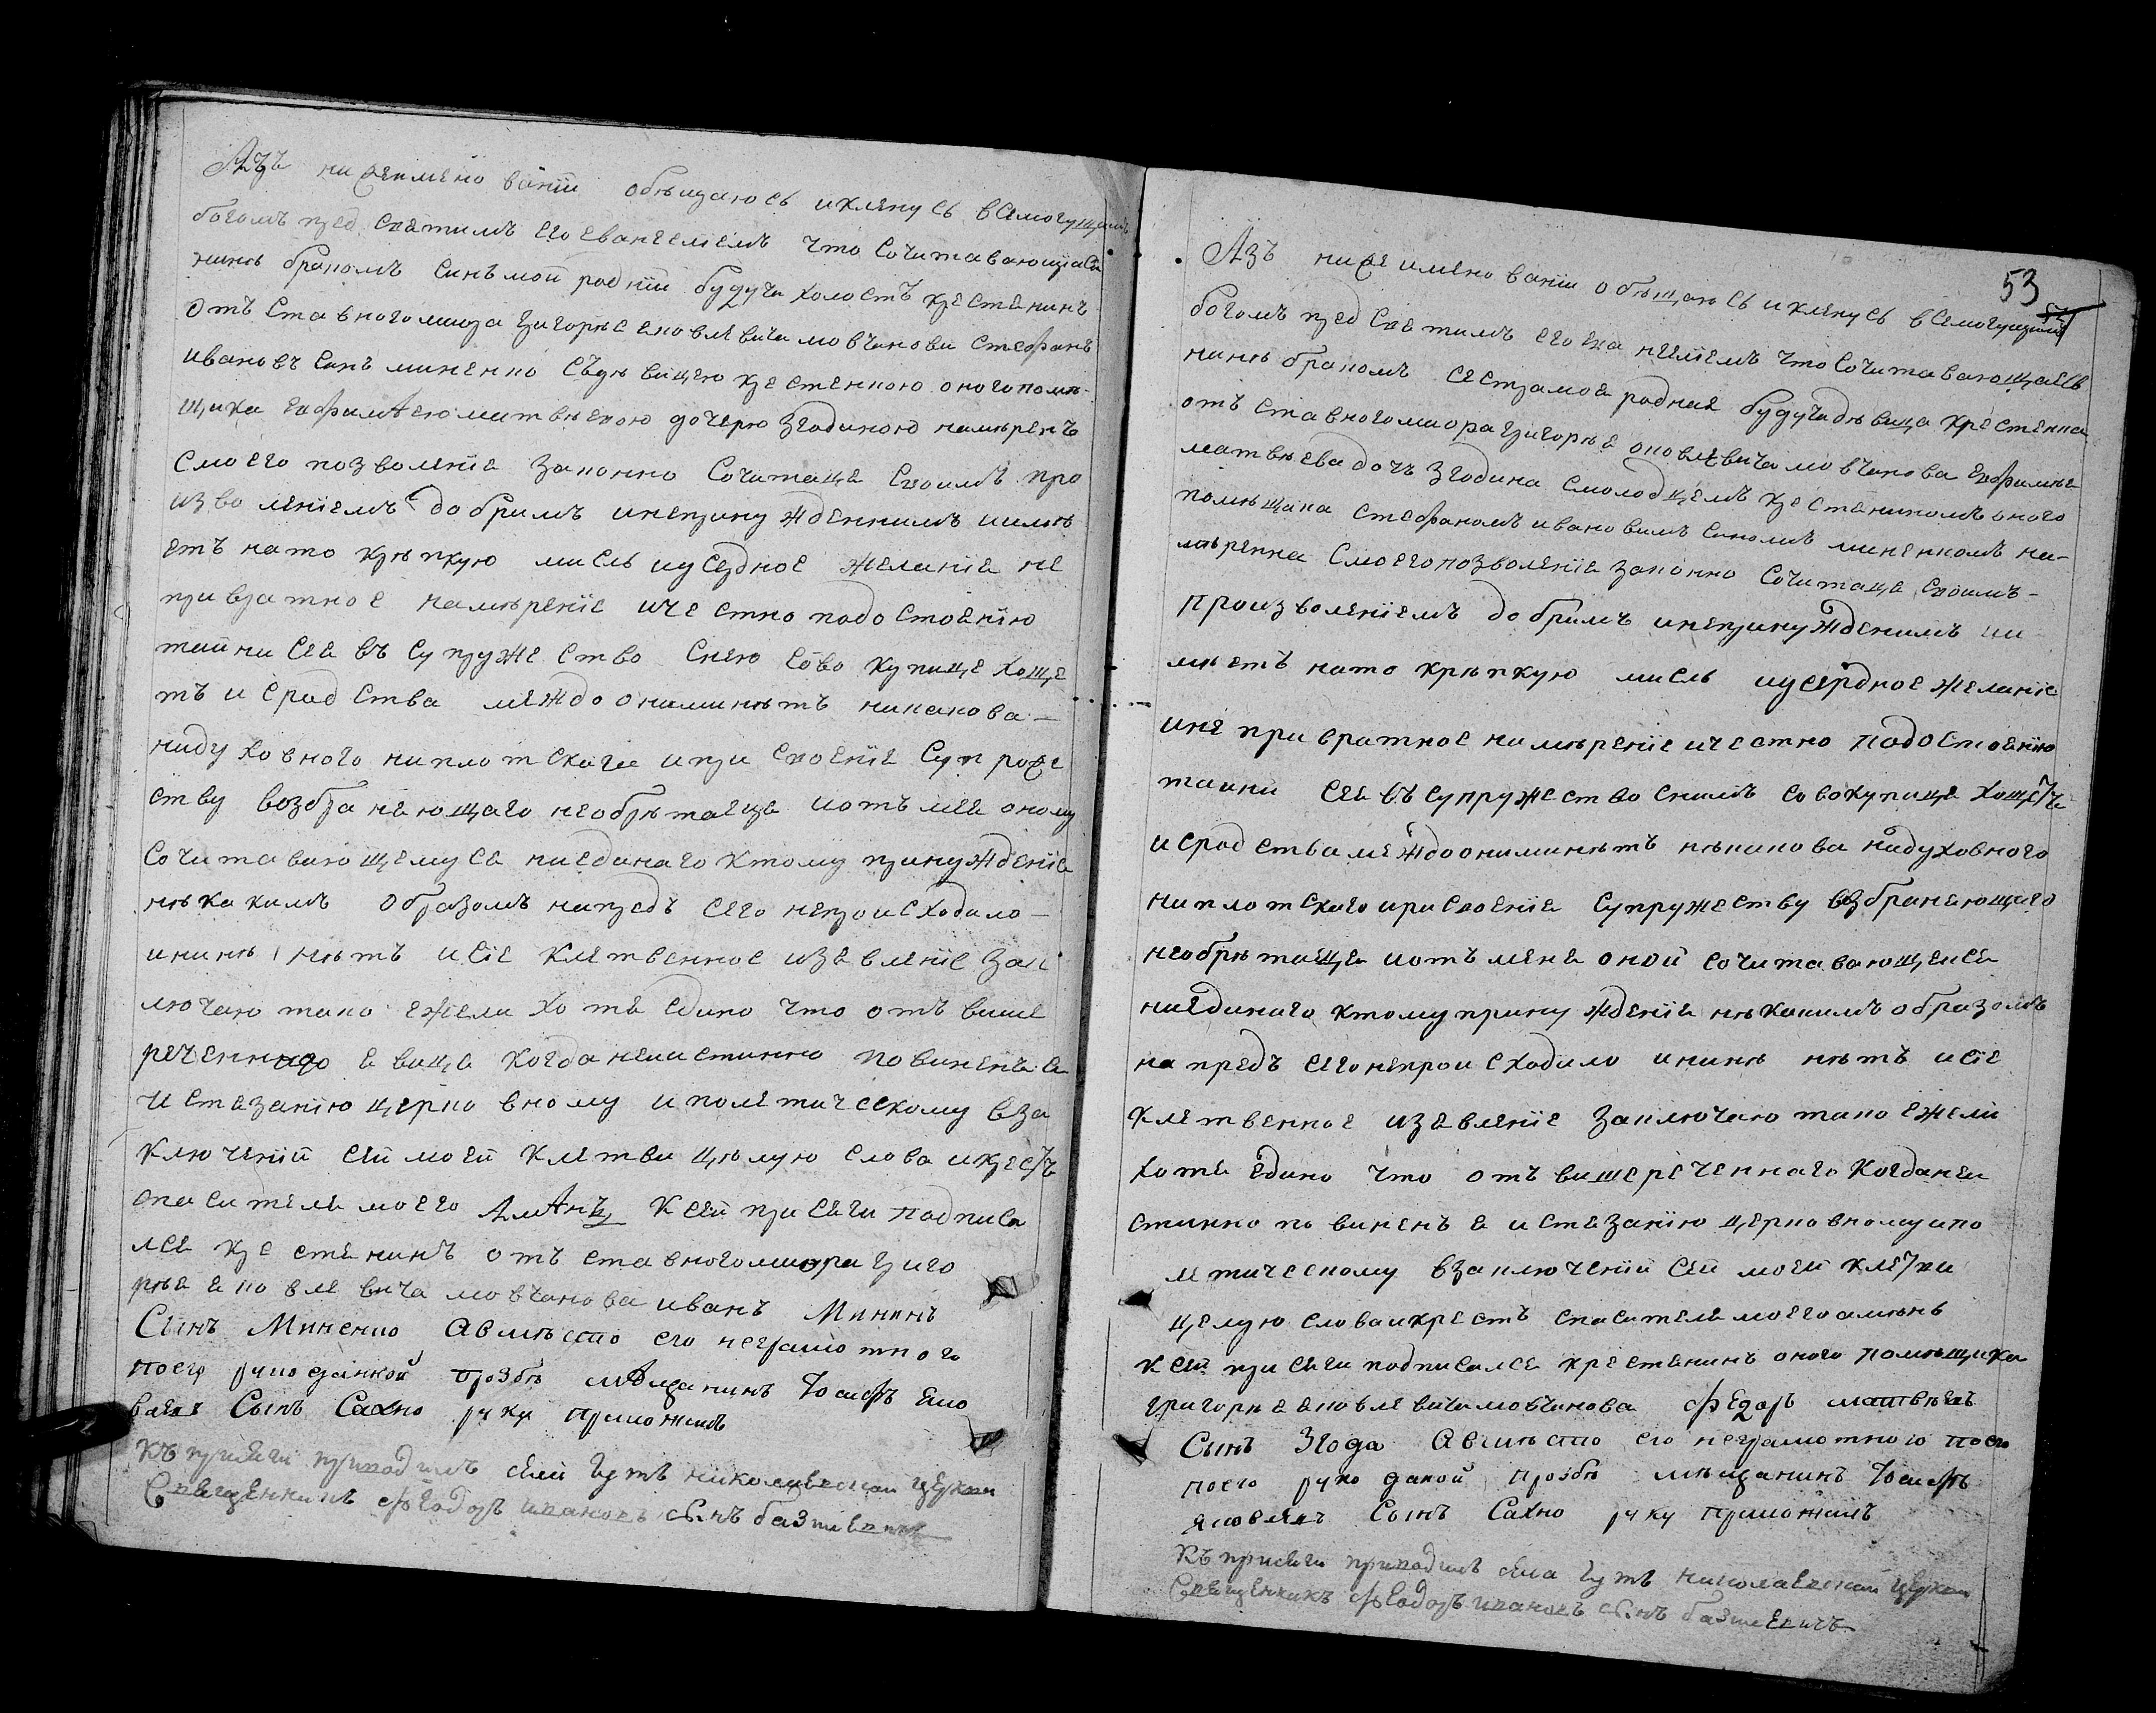 Азъ нижеимено ваний обѣщаюсь иклянусь всемогущимъ
богомъ пред святимъ его евангелиемъ что сочитавающиася
нинѣ бракомъ синъмой родній будучи холостъ крестянинъ
отъ ставногомиора григорѣя яковлевича мовчанови стефанъ
ивановъ синъ миненко съдѣвицею крестянкою оногопомѣ-
щика евфимиею матвѣевою дочерю Згодиною намѣренъ
смоего позволенія законно сочитаця своимъ про
изволеніемъ добримъ инепринужденнимъ иимѣ
етъ нато крѣпкую мисль иусердное желаніе не
привратное намѣреніе ичестно подостоянію
тайни сея въ супружество снею совокупиця хоще
тъ и сродства между ониминѣтъ никакова-
нидуховного ниплотскаго ипри своеніе супроже
ству возбраняющаго необрѣтаеця иотъ мея оному
сочитавающемуся ниединаго ктому принужденіе
нѣкакимъ образомъ напредъ сего непроисходило-
ининѣ нѣтъ исіе клятвенное изявленіе зак
лючаю тако ежели хотя едино что отъ више
реченнадо явиця когда неистинно повиненъ я
истязанію церковному иполетическому вза
ключеній сей моей клятви цѣлую слова икрестъ
спасителя моего Аминь ксей присяги подписа
лся крестянинъ отъ ставногомиора григо
рѣя яковлевича мовчанова иванъ Мининъ
Сынъ Миненко Авмѣсто его неграмотного
поего рукоданной прозбѣ мѣщанинъ Іосифъ яко
влевъ Сынъ Сахно руку приложилъ
Къ присяги приводилъ села гутъ николаевской церкви
Священникъ феодоръ ивановъ синъ базилевичъ
53
Азъ нижеимено ваний обѣщаюсь иклянусь всемогущимъ
богомъ пред святимъ его ева нгелиемъ что сочитавающаясь
нинѣ бракомъ сестрамоя родная будучадѣвица крестянка
отъ ставногомиора григорѣя яковлевича мовчанова евфимѣя
матвѣева дочъ Згодина смолодцемъ крестяниномъ оного
помѣщика стефаномъ ивановимъ синомъ миненкомъ на-
мѣренна смоегопозволеніе законно сочитаця своимъ-
произволеніемъ добримъ инепринужденимъ ии
мѣетъ нато крѣпкую мисль иусердное желаніе
ине привратное намѣреніе ичестно подостоянію
таини сея въ супружество снимъ совокупиця хощетъ
исродства междоониминѣтъ нѣкакова нидуховного
ниплотскаго присвоеніе супружеству возбраняющаго
необрѣтаеця иотъ меня оной сочитавающейся
ниединаго ктому принужденія нѣкакимъ образомъ
напредъ сегонепроисходило ининѣ нѣтъ исіе
клятвенное изявленіе заключаю тако ежели
хотя едино что отъ вишереченнаго когданеи
стинно повиненъ я истязанію церковному ипо
летическому взаключеній сей моей клятви
целую слова икрестъ спасителя моего аминь
ксей присяги подписался крестянинъ оного помѣщика
григорѣя яковлевича мовчанова федоръ матвѣевъ
Сынъ Згода Авмѣсто его неграмотного поего
поего руко даной прозбѣ мѣщанинъ Іосифъ
яковлевъ Сынъ Сахно руку приложилъ
Къ присяги приводилъ села гутъ николаевской церкви
Священникъ феодоръ ивановъ синъ базилевичъ